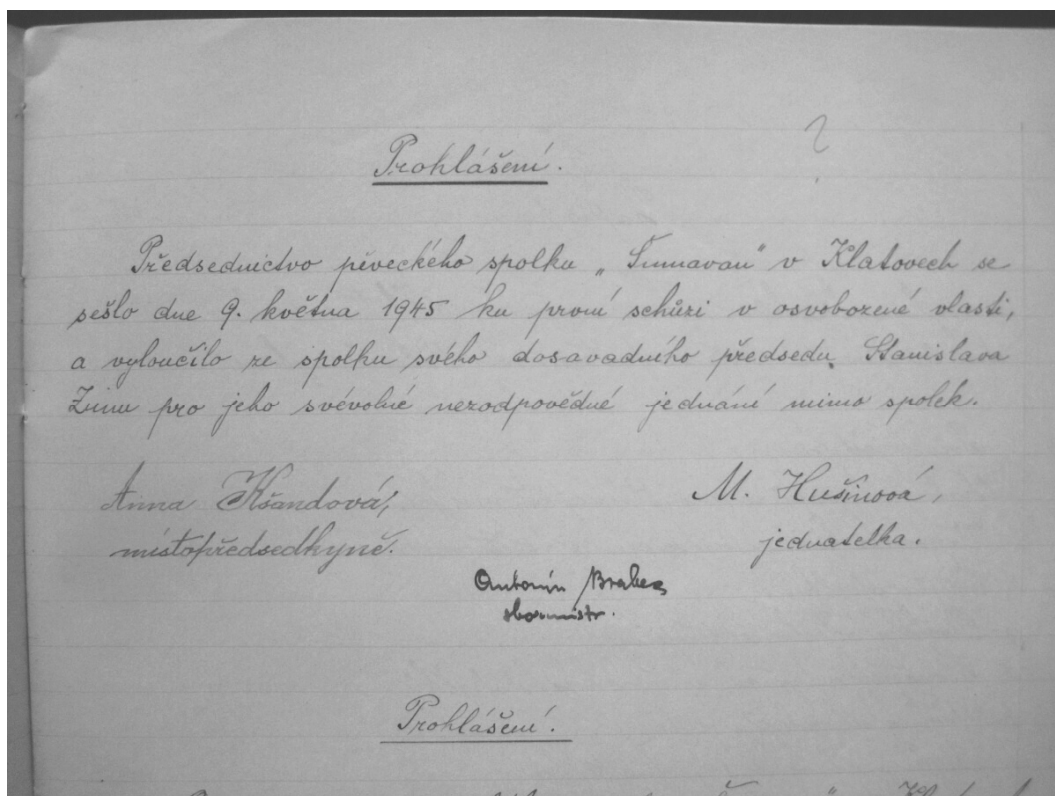 ?
Prohlášení.
Předsednictvo pěveckého spolku „Šumavan" v Klatovech se
sešlo dne 9. května 1945 ku první schůzi v osvobozené vlasti,
a vyloučilo ze spolku svého dosavadního předsedu Stanislava
Zimu pro jeho svévolné nezodpovědné jednání mimo spolek.
Anna Kšandová,
M. Hušinová,
místopředsedkyně.
jednatelka.
Antonín Brabec
sbormistr.
Prohlášení.